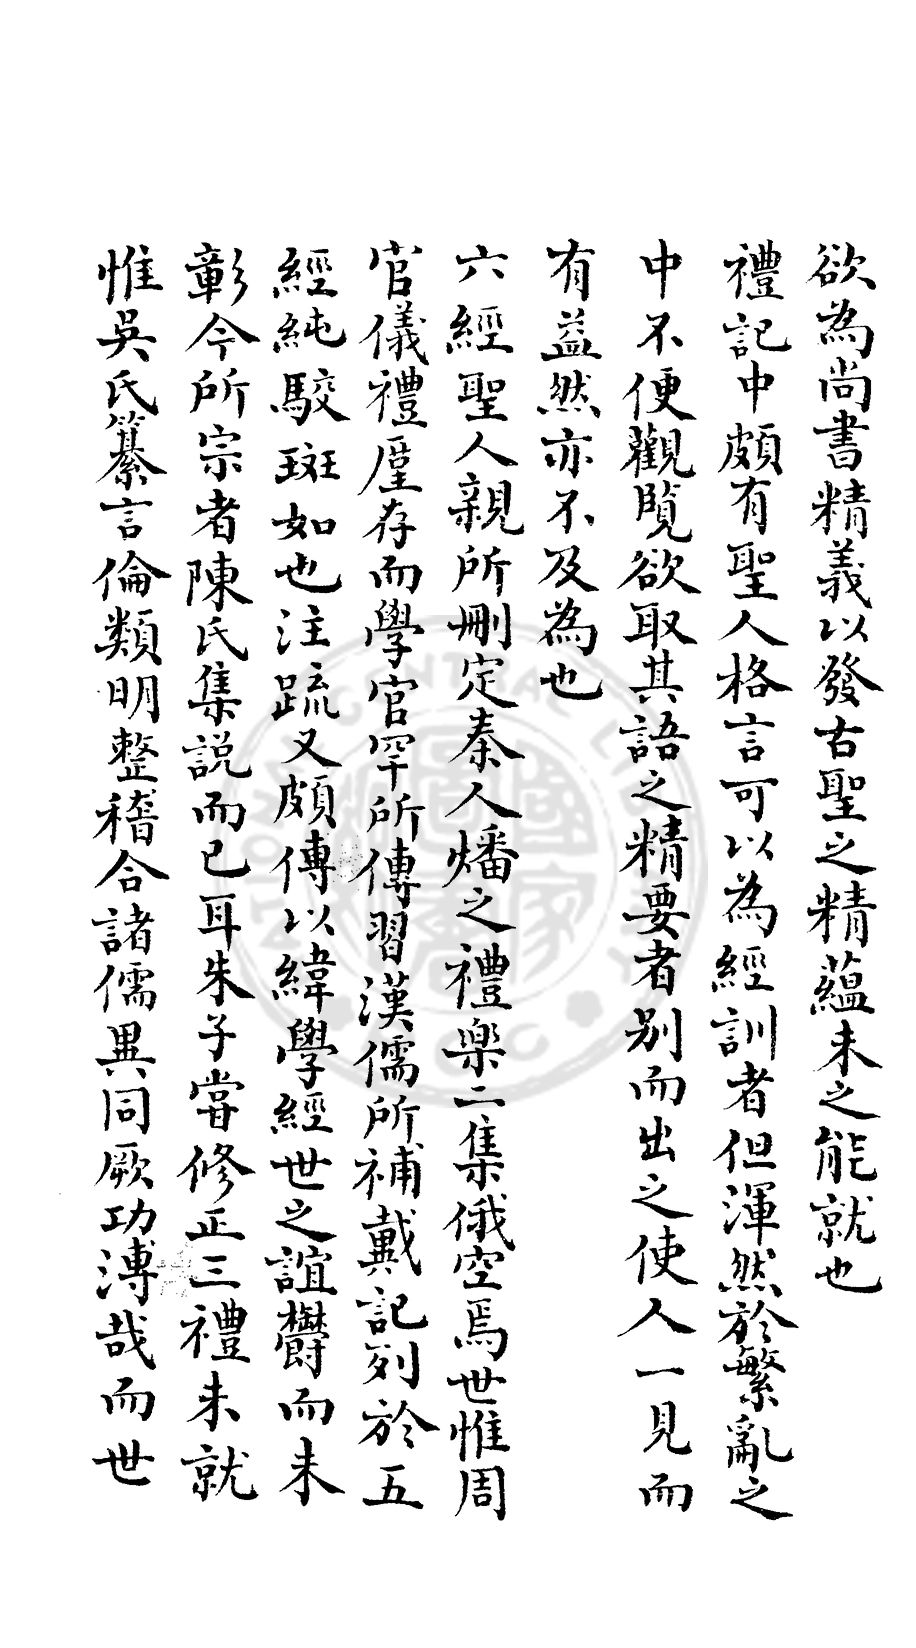 欲為尚書精義以發古聖之精蘊未之能就也
禮記中頗有聖人格言可以為經訓者但渾然於繁亂之
中不便觀覧欲取其語之精要者别而出之使人一見而
有益然亦不及為也
六經聖人親所刪定秦人燔之禮樂二集俄空焉世惟周
官儀禮廑存而學官罕所傳習漢儒所補戴記列於五
經純駮斑如也注疏又頗傳以緯學經世之誼欝而未
彰今所宗者陳氏集説而已耳朱子嘗修正三禮未就
惟吳氏纂言倫類明整稽合諸儒異同厥功溥哉而世